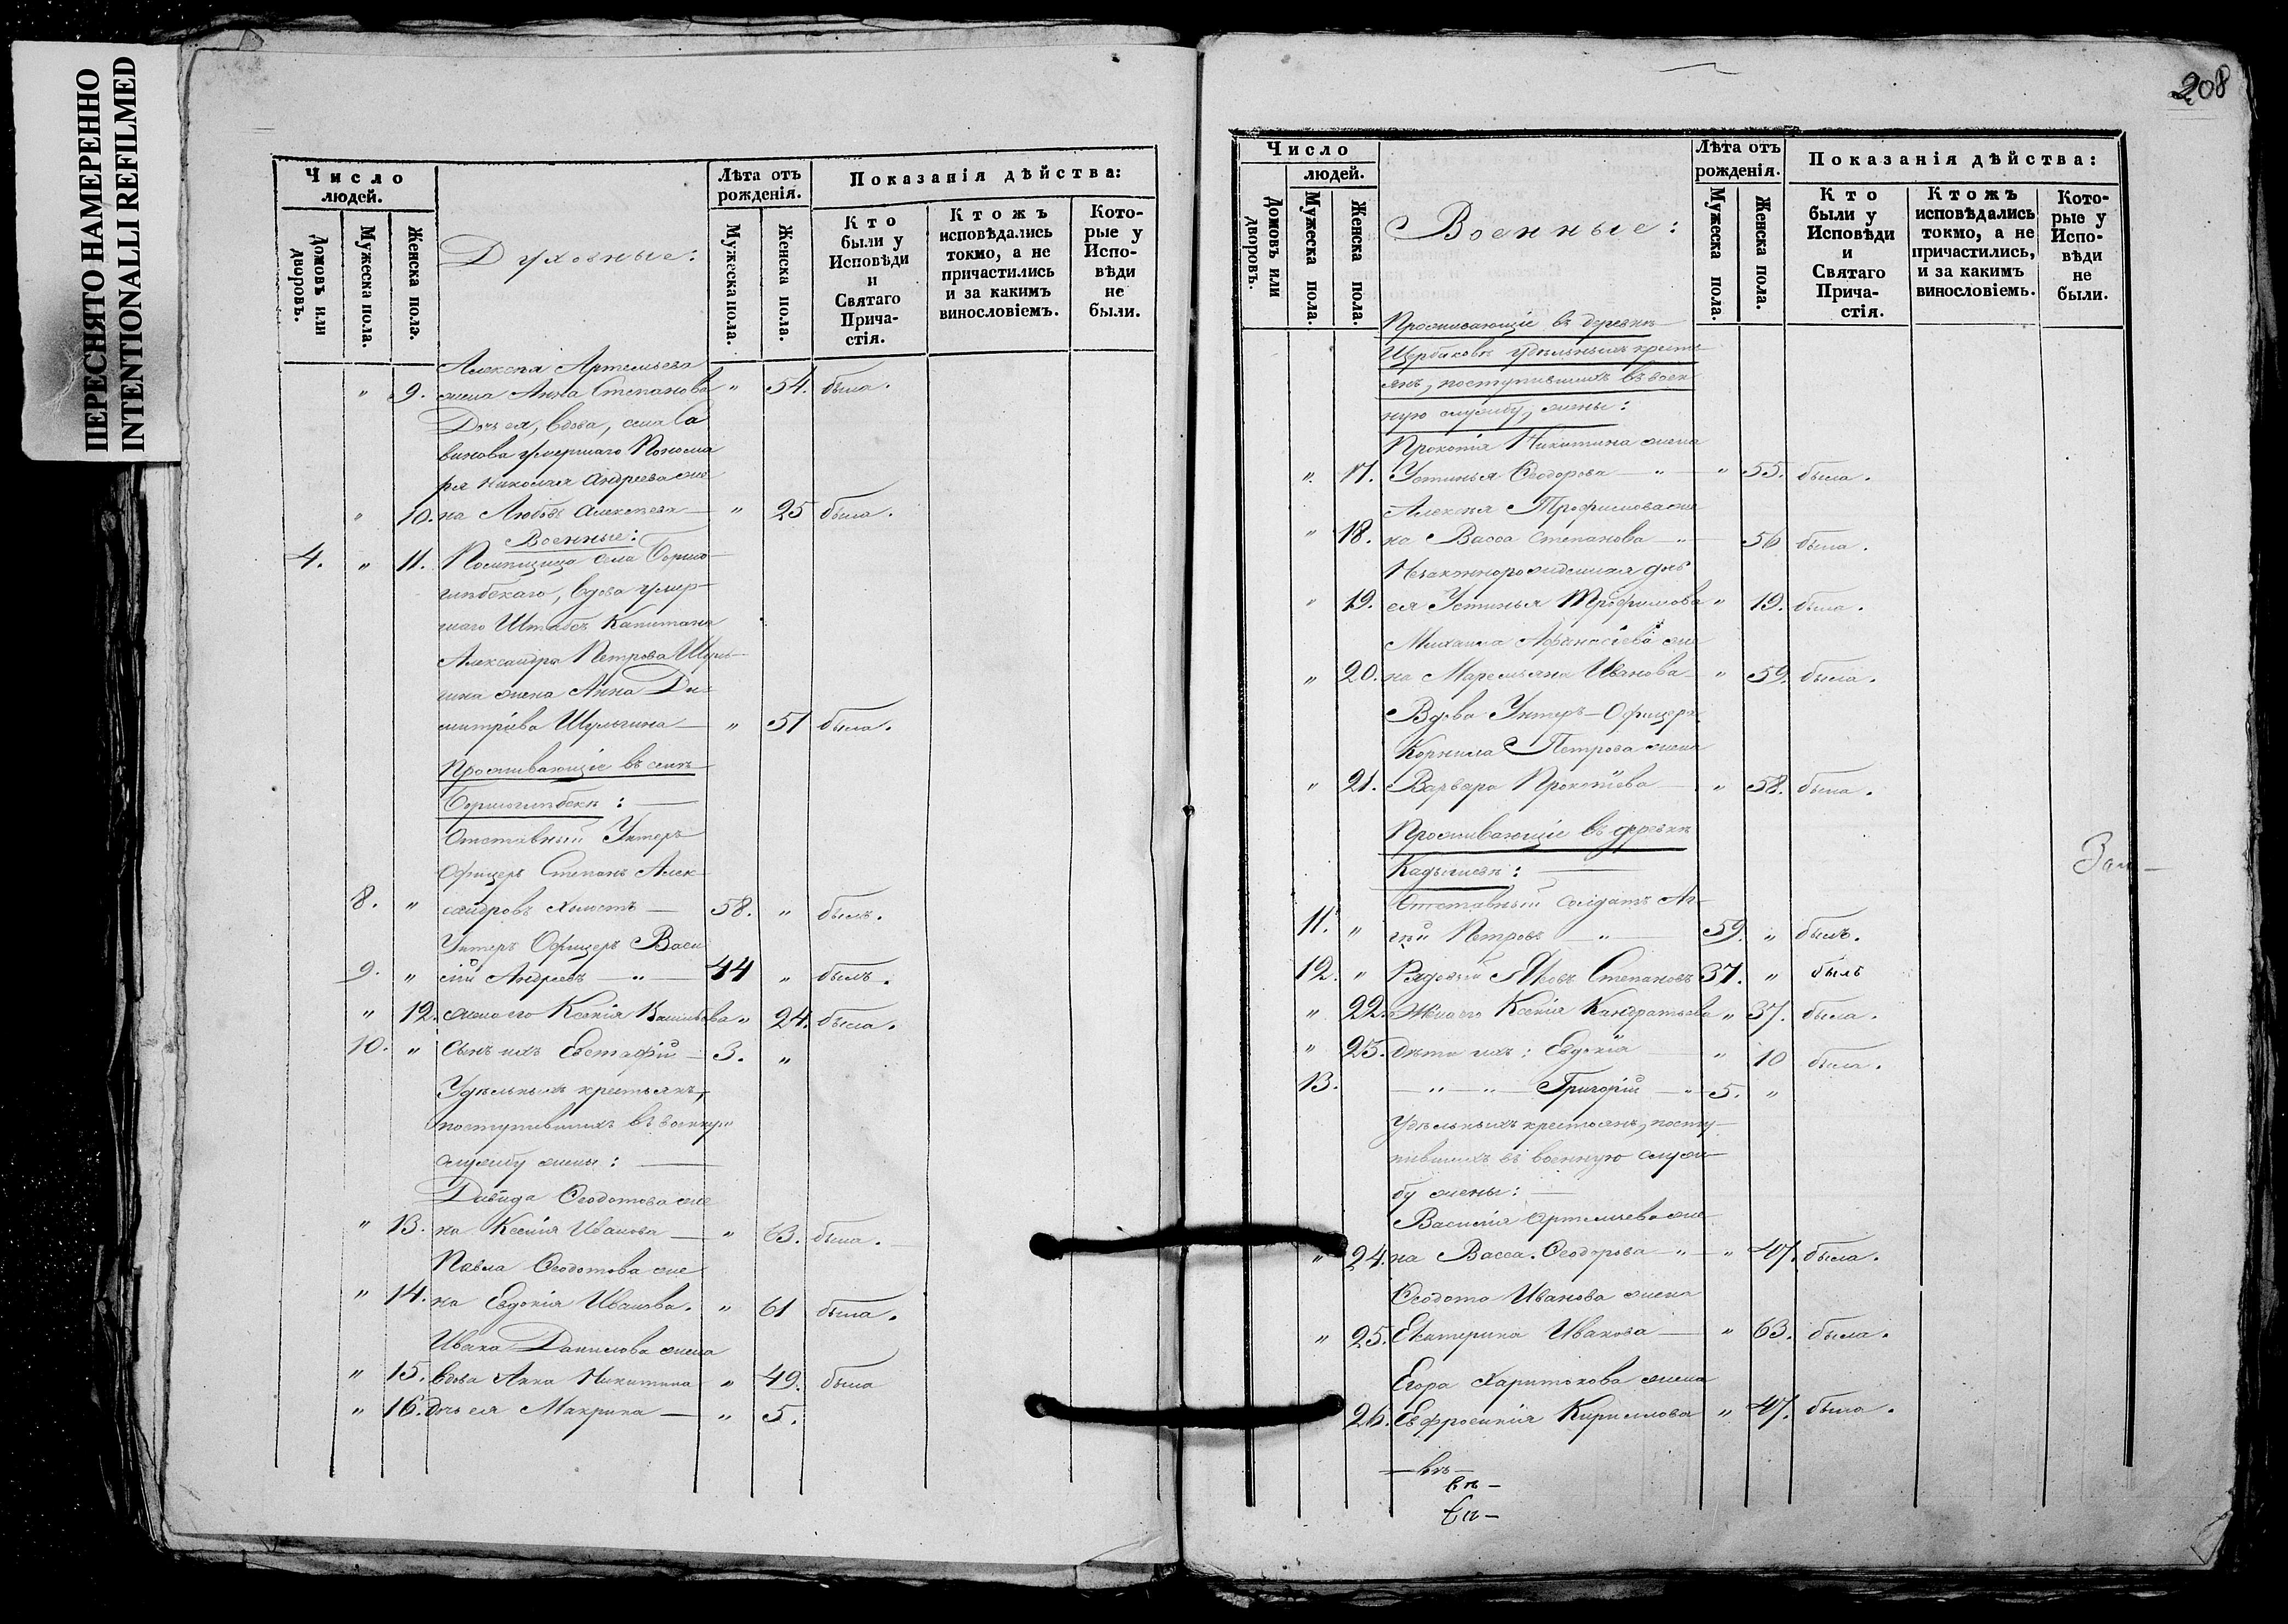 ПЕРЕСНЯТО НАМЕРЕННО
INTENTIONALLI REFILMED
Число
людей.
Домовъ или дворовъ.
Мужеска пола.
Женска пола.
Духовные:
Лѣта отъ
рожденія.
Мужеска пола.
Женска пола.
Показанія дѣйства:
Кто
были у
Исповѣди
и
Святаго
Прича-
стія.
Ктожъ
исповѣдались
токмо, а не
причастились
и за какимъ
винословіемъ.
Кото-
рые у
Испо-
вѣди
не
были.
Алексѣя Артемьева
" 9. жена Анна Степанова " 54. была.
Дочь ея, вдова,
умершаго Понома
ря Николая Андреева же
" 10. на Любовь Алексѣева — " 25 была.
Военные:
4. " 11. Помѣщица села
вдова умер-
шаго Штабсъ Капитана
Александра Петрова Шуль-
гина жена Анна Ди-
митріева Шульгина — " 51 была.
Проживающіе въ селѣ
Отставный Унтеръ
Офицеръ Степанъ Алек-
8. " сандровъ холостъ — 58. " былъ.
Унтеръ Офицеръ Васи
9. " лій Андреевъ — " — 44 " былъ.
" 12. жена его Ксенія Васильева " 24. была.
10. " Сынъ ихъ Евстафій — 3. "
Удѣльныхъ крестьянъ,
поступившихъ въ военную
службу жены: —
Давида Ѳеодотова же
" 13. на Ксенія Иванова — " 63. была.
Павла Ѳеодотова же
" 14. на Евдокія Иванова. " 61 была.
Ивана Данилова жена
" 15. вдова Анна Никитина " 49. была
" 16. дочь ея Макрина — " 5.
208
Число
людей.
Домовъ или дворовъ.
Мужеска пола.
Женска пола.
Военные:
Лѣта отъ
рожденія.
Мужеска пола.
Женска пола.
Показанія дѣйства:
Кто
были у
Исповѣди
и
Святаго
Прича-
стія.
Ктожъ
исповѣдались
токмо, а не
причастились,
и за какимъ
винословіемъ.
Кото-
рые у
Испо-
вѣди
не
были.
Проживающіе въ деревнѣ
Щербаковѣ удѣльныхъ кресть-
янъ, поступившихъ въ воен-
ную службу, жены:
Прокопія Никитина жена
" 17. Устинья Ѳеодорова — " — " 55. была.
Алексѣя Трофимова же
" 18. на Васса Степанова — " — 56 была.
Незаконнорожденная дочь
" 19. ея Устинья Трофимова " 19. была.
Михаила Афанасіева же
" 20. на Маремьяна Иванова — " 59. была.
Вдова Унтеръ-Офицера
Корнила Петрова жена
" 21. Варвара Прокопіева — " 58. была.
Проживающіе въ деревнѣ
Отставный солдатъ Ан-
11. " Петровъ — " — 59. " былъ.
12. " Рядовый Яковъ Степановъ 37. " былъ
" 22. Жена его Ксенія Кандратьева " 37. была.
" 23. дѣти ихъ: Евдокія — " 10 была.
13. — " — " — Григорій — " 5. "
Удѣльныхъ крестьянъ, посту-
пившихъ въ военную служ-
бу жены: —
Василія Артемьева же
" 24. на Васса Ѳеодорова — " — " 47. была.
Ѳеодота Иванова жена
" 25. Екатерина Иванова — " 63. была.
Егора Харитонова жена
26. Евфросинія Кириллова " 47. была.